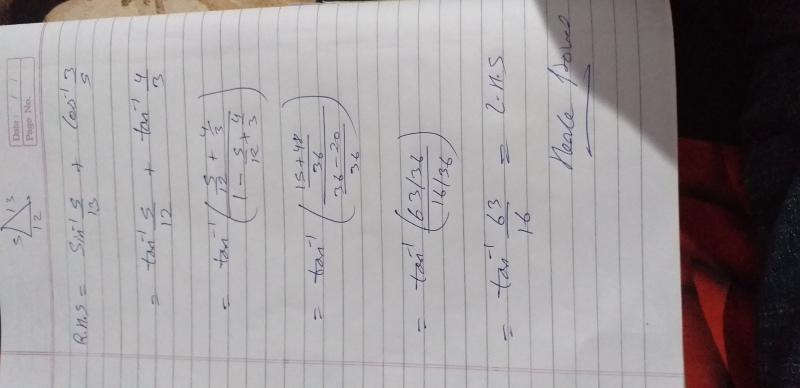 Date: / /
Page No.
5 13
12
R.H.S = Sin⁻¹ 5/13 + Cos⁻¹ 3/5
= tan⁻¹ 5/12 + tan⁻¹ 4/3
= tan⁻¹ ( (5/12 + 4/3) / (1 - 5/12 + 4/3) )
= tan⁻¹ ( ((15+48)/36) / ((36-20)/36) )
= tan⁻¹ ( (63/36) / (16/36) )
= tan⁻¹ 63/16 = L.H.S
Hence proved